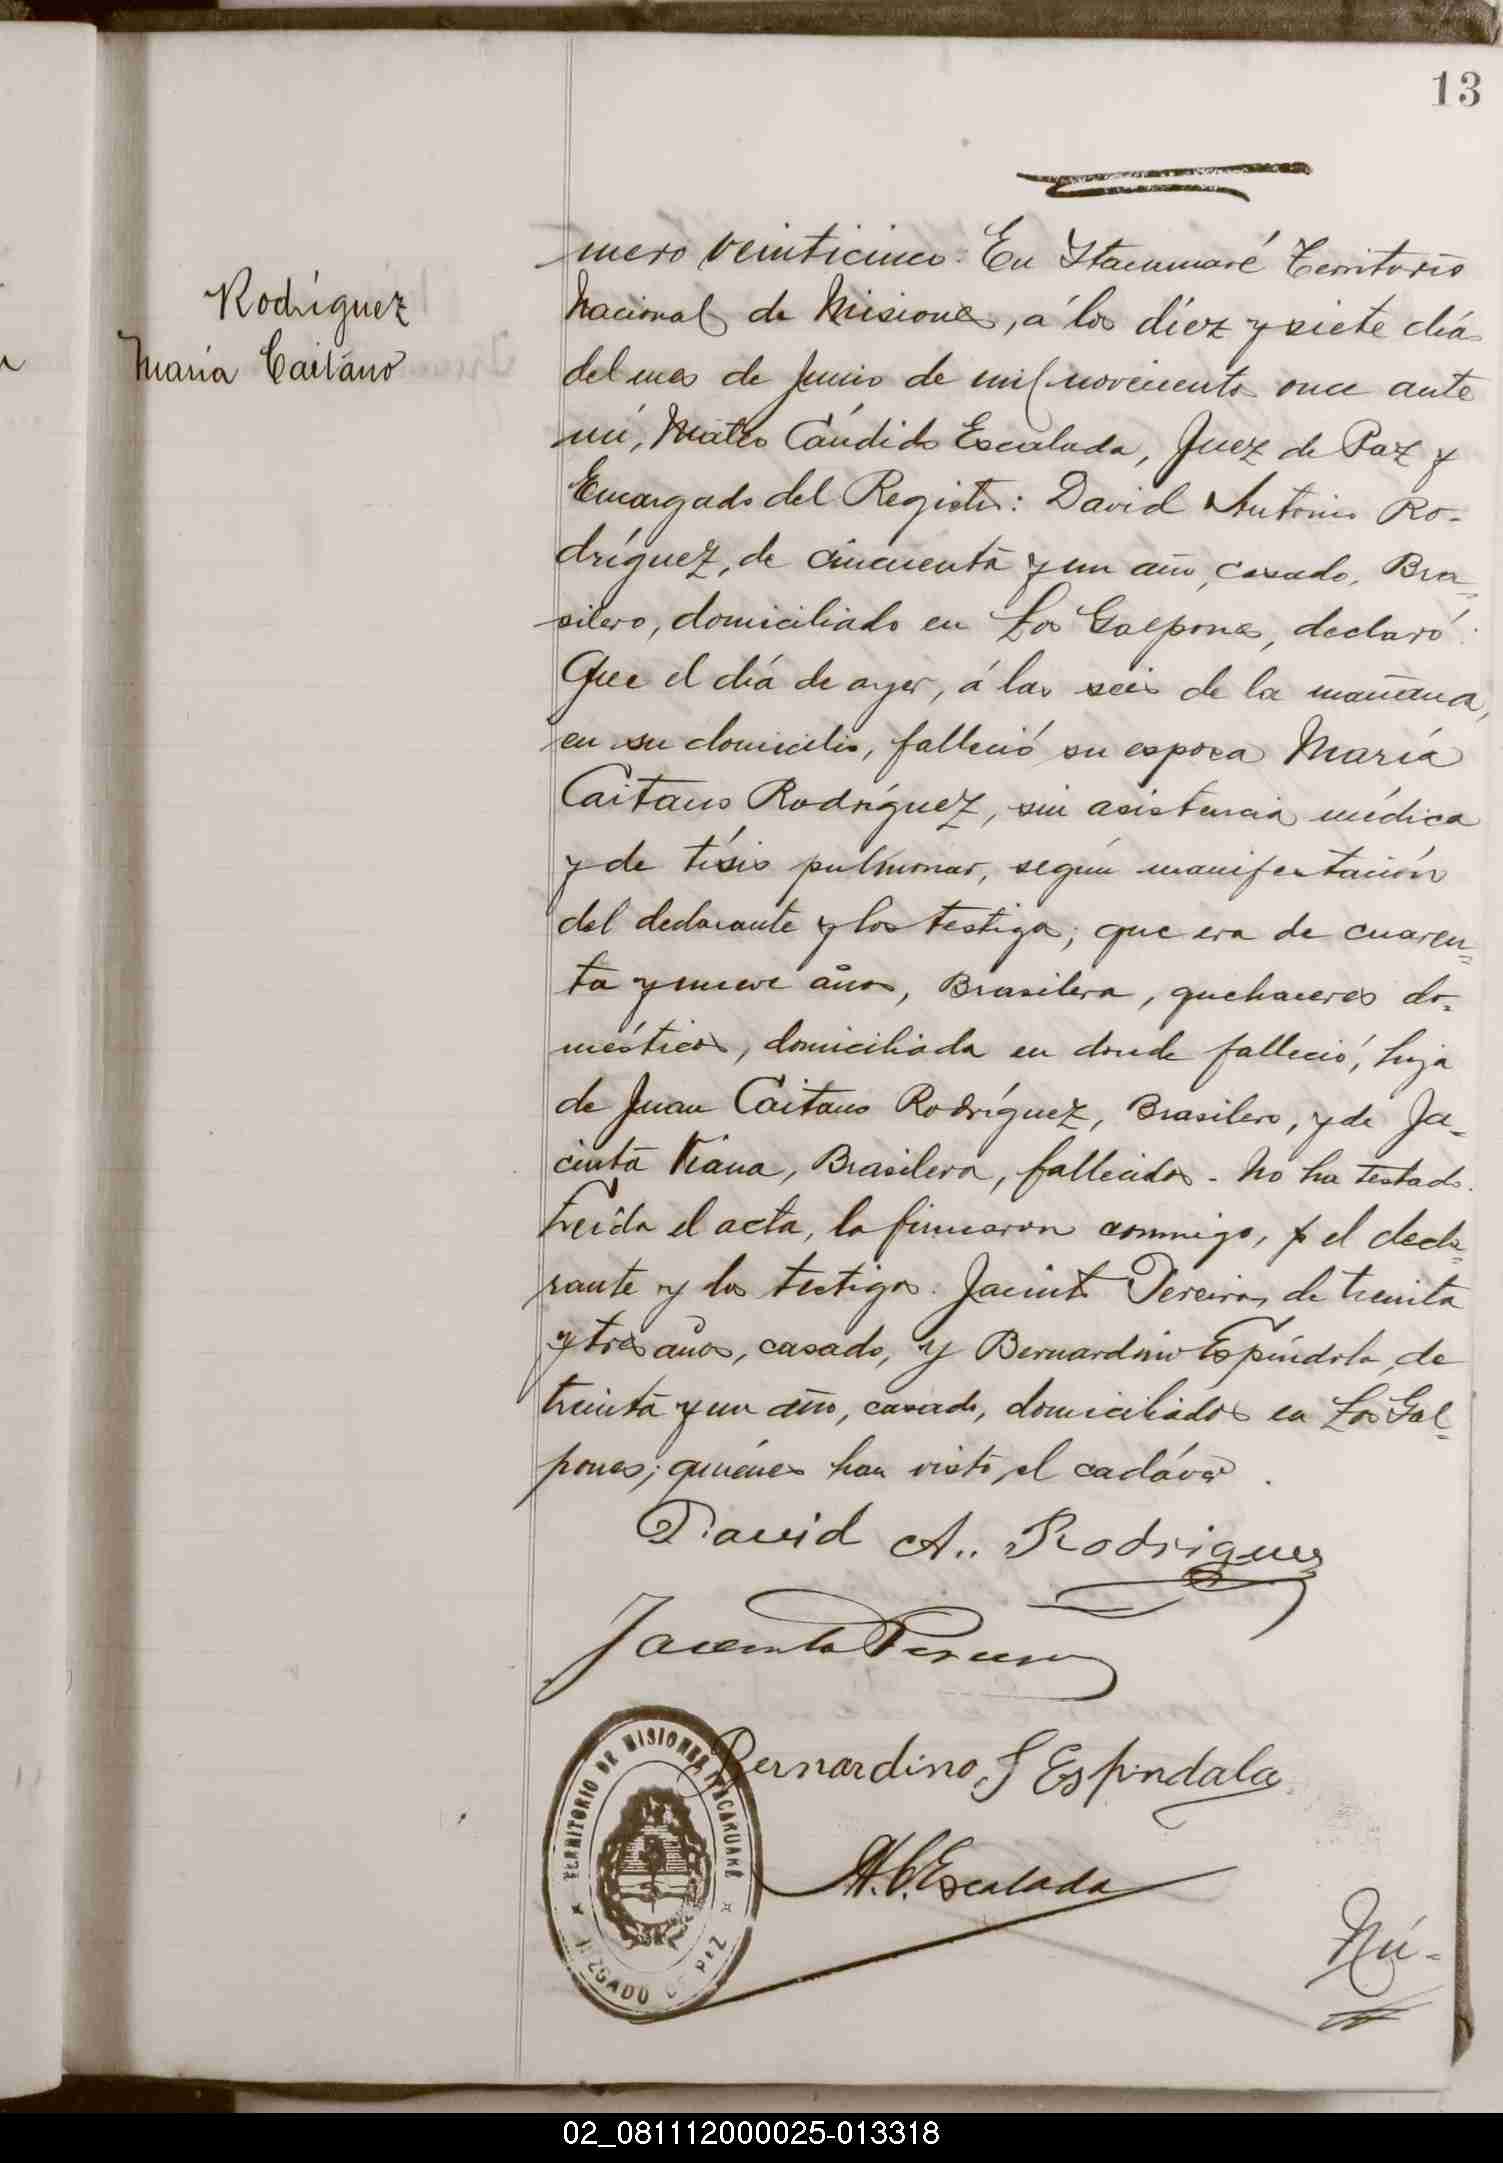 13
Rodríguez
María Caitano
mero veinticinco: En Itacuruaré Territorio
Nacional de Misiones, á los diez y siete días
del mes de Junio de mil novecientos once ante
mí, Mateo Cándido Escalada, Juez de Paz y
Encargado del Registro: David Antonio Ro-
dríguez, de cincuenta y un año, casado, Bra-
silero, domiciliado en Los Galpones, declaró:
Que el día de ayer, á las seis de la mañana,
en su domicilio, falleció su esposa María
Caitano Rodríguez, sin asistencia médica
y de tísis pulmonar, según manifestación
del declarante y los testigos; que era de cuaren-
ta y nueve años, Brasilera, quehaceres do-
mésticos, domiciliada en donde falleció, hija
de Juan Caitano Rodríguez, Brasilero, y de Ja-
cinta Viana, Brasilera, fallecidos. No ha testado.
Leída el acta, la firmaron conmigo, el decla-
rante y los testigos: Jacinto Pereira, de treinta
y tres años, casado, y Bernardino Espíndola, de
treinta y un año, casado, domiciliados en Los Gal-
pones; quiénes han visto el cadáver.
David A. Rodriguez
Jacento Pereira
Bernardino S Espindala
M. C. Escalada
TERRITORIO DE MISIONES ITACARUARÉ
JUZGADO DE PAZ
Nú-
02_081112000025-013318